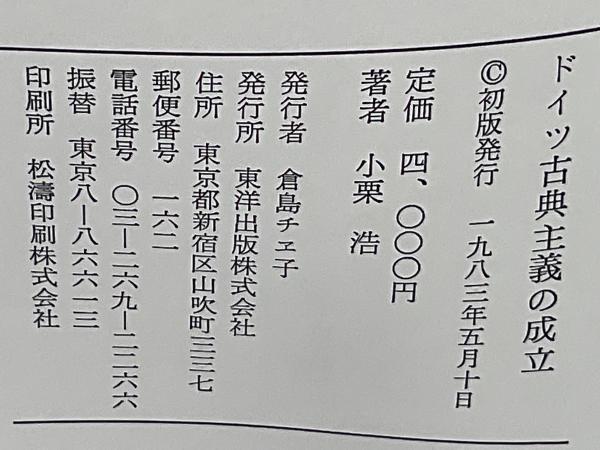 ドイツ古典主義の成立
©初版発行 一九八三年五月十日
定価 四、〇〇〇円
著者 小栗 浩
発行者 倉島チヱ子
発行所 東洋出版株式会社
住所 東京都新宿区山吹町三三七
郵便番号 一六二
電話番号 〇三―二六九―二二六六
振替 東京八―八六六一三
印刷所 松濤印刷株式会社